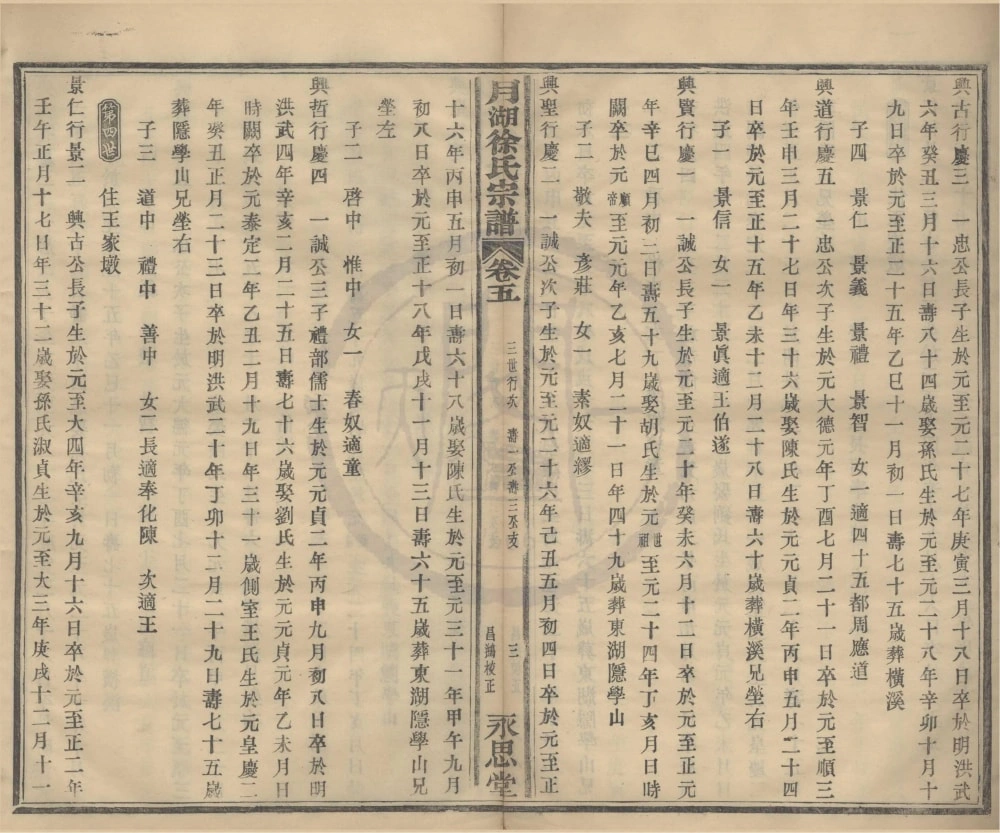 興古行慶三 一忠公長子生於元至元二十七年庚寅三月十八日卒於明洪武
六年癸丑三月十六日壽八十四歲娶孫氏生於元至元二十八年辛卯十月十
九日卒於元至正二十五年乙巳十一月初一日壽七十五歲葬橫溪
子四 景仁 景義 景禮 景智 女一適四十五都周應道
興道行慶五 一忠公次子生於元大德元年丁酉七月二十一日卒於元至順三
年壬申三月二十七日年三十六歲娶陳氏生於元元貞二年丙申五月二十四
日卒於元至正十五年乙未十二月二十八日壽六十歲葬橫溪兄坐右
子一 景信 女一 景眞適王伯遂
興賢行慶一 一誠公長子生於元至元二十年癸未六月十二日卒於元至正元
年辛巳四月初三日壽五十九歲娶胡氏生於元世祖至元二十四年丁亥月日時
闕卒於元順帝至元元年乙亥七月二十一日年四十九歲葬東湖隱學山
子二 敬夫 彥莊 女一 素奴適繆
興聖行慶二 一誠公次子生於元至元二十六年己丑五月初四日卒於元至正
月湖徐氏宗譜 卷五 三世行次 壽一丞壽三丞支 三 昌鏞校正 永思堂
十六年丙申五月初一日壽六十八歲娶陳氏生於元至元三十一年甲午九月
初八日卒於元至正十八年戊戌十一月十三日壽六十五歲葬東湖隱學山兄
坐左
子二 啓中 惟中 女一 春奴適童
興哲行慶四 一誠公三子禮部儒士生於元元貞二年丙申九月初八日卒於明
洪武四年辛亥二月二十五日壽七十六歲娶劉氏生於元元貞元年乙未月日
時闕卒於元泰定二年乙丑二月十九日年三十一歲側室王氏生於元皇慶二
年癸丑正月二十三日卒於明洪武二十年丁卯十二月二十九日壽七十五歲
葬隱學山兄坐右
子三 道中 禮中 善中 女二長適奉化陳 次適王
第四世 住王家墩
景仁行景二 興古公長子生於元至大四年辛亥九月十六日卒於元至正二年
壬午正月十七日年三十二歲娶孫氏淑貞生於元至大三年庚戌十二月十一